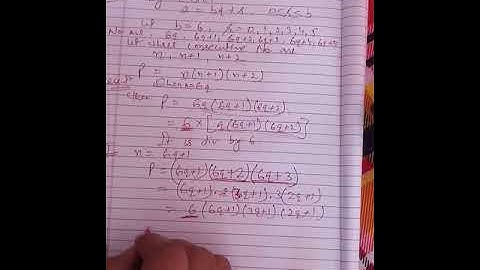 a = bq + r, 0≤r<b
let b = 6, r = 0, 1, 2, 3, 4, 5
No are 6q, 6q+1, 6q+2, 6q+3, 6q+4, 6q+5
let three consecutive No are
n, n+1, n+2
P = n(n+1)(n+2)
when n=6q
P = 6q(6q+1)(6q+2)
= 6 × [q(6q+1)(6q+2)]
It is div by 6
n = 6q+1
P = (6q+1)(6q+2)(6q+3)
= (6q+1).2(3q+1).3(2q+1)
= 6(6q+1)(3q+1)(2q+1)